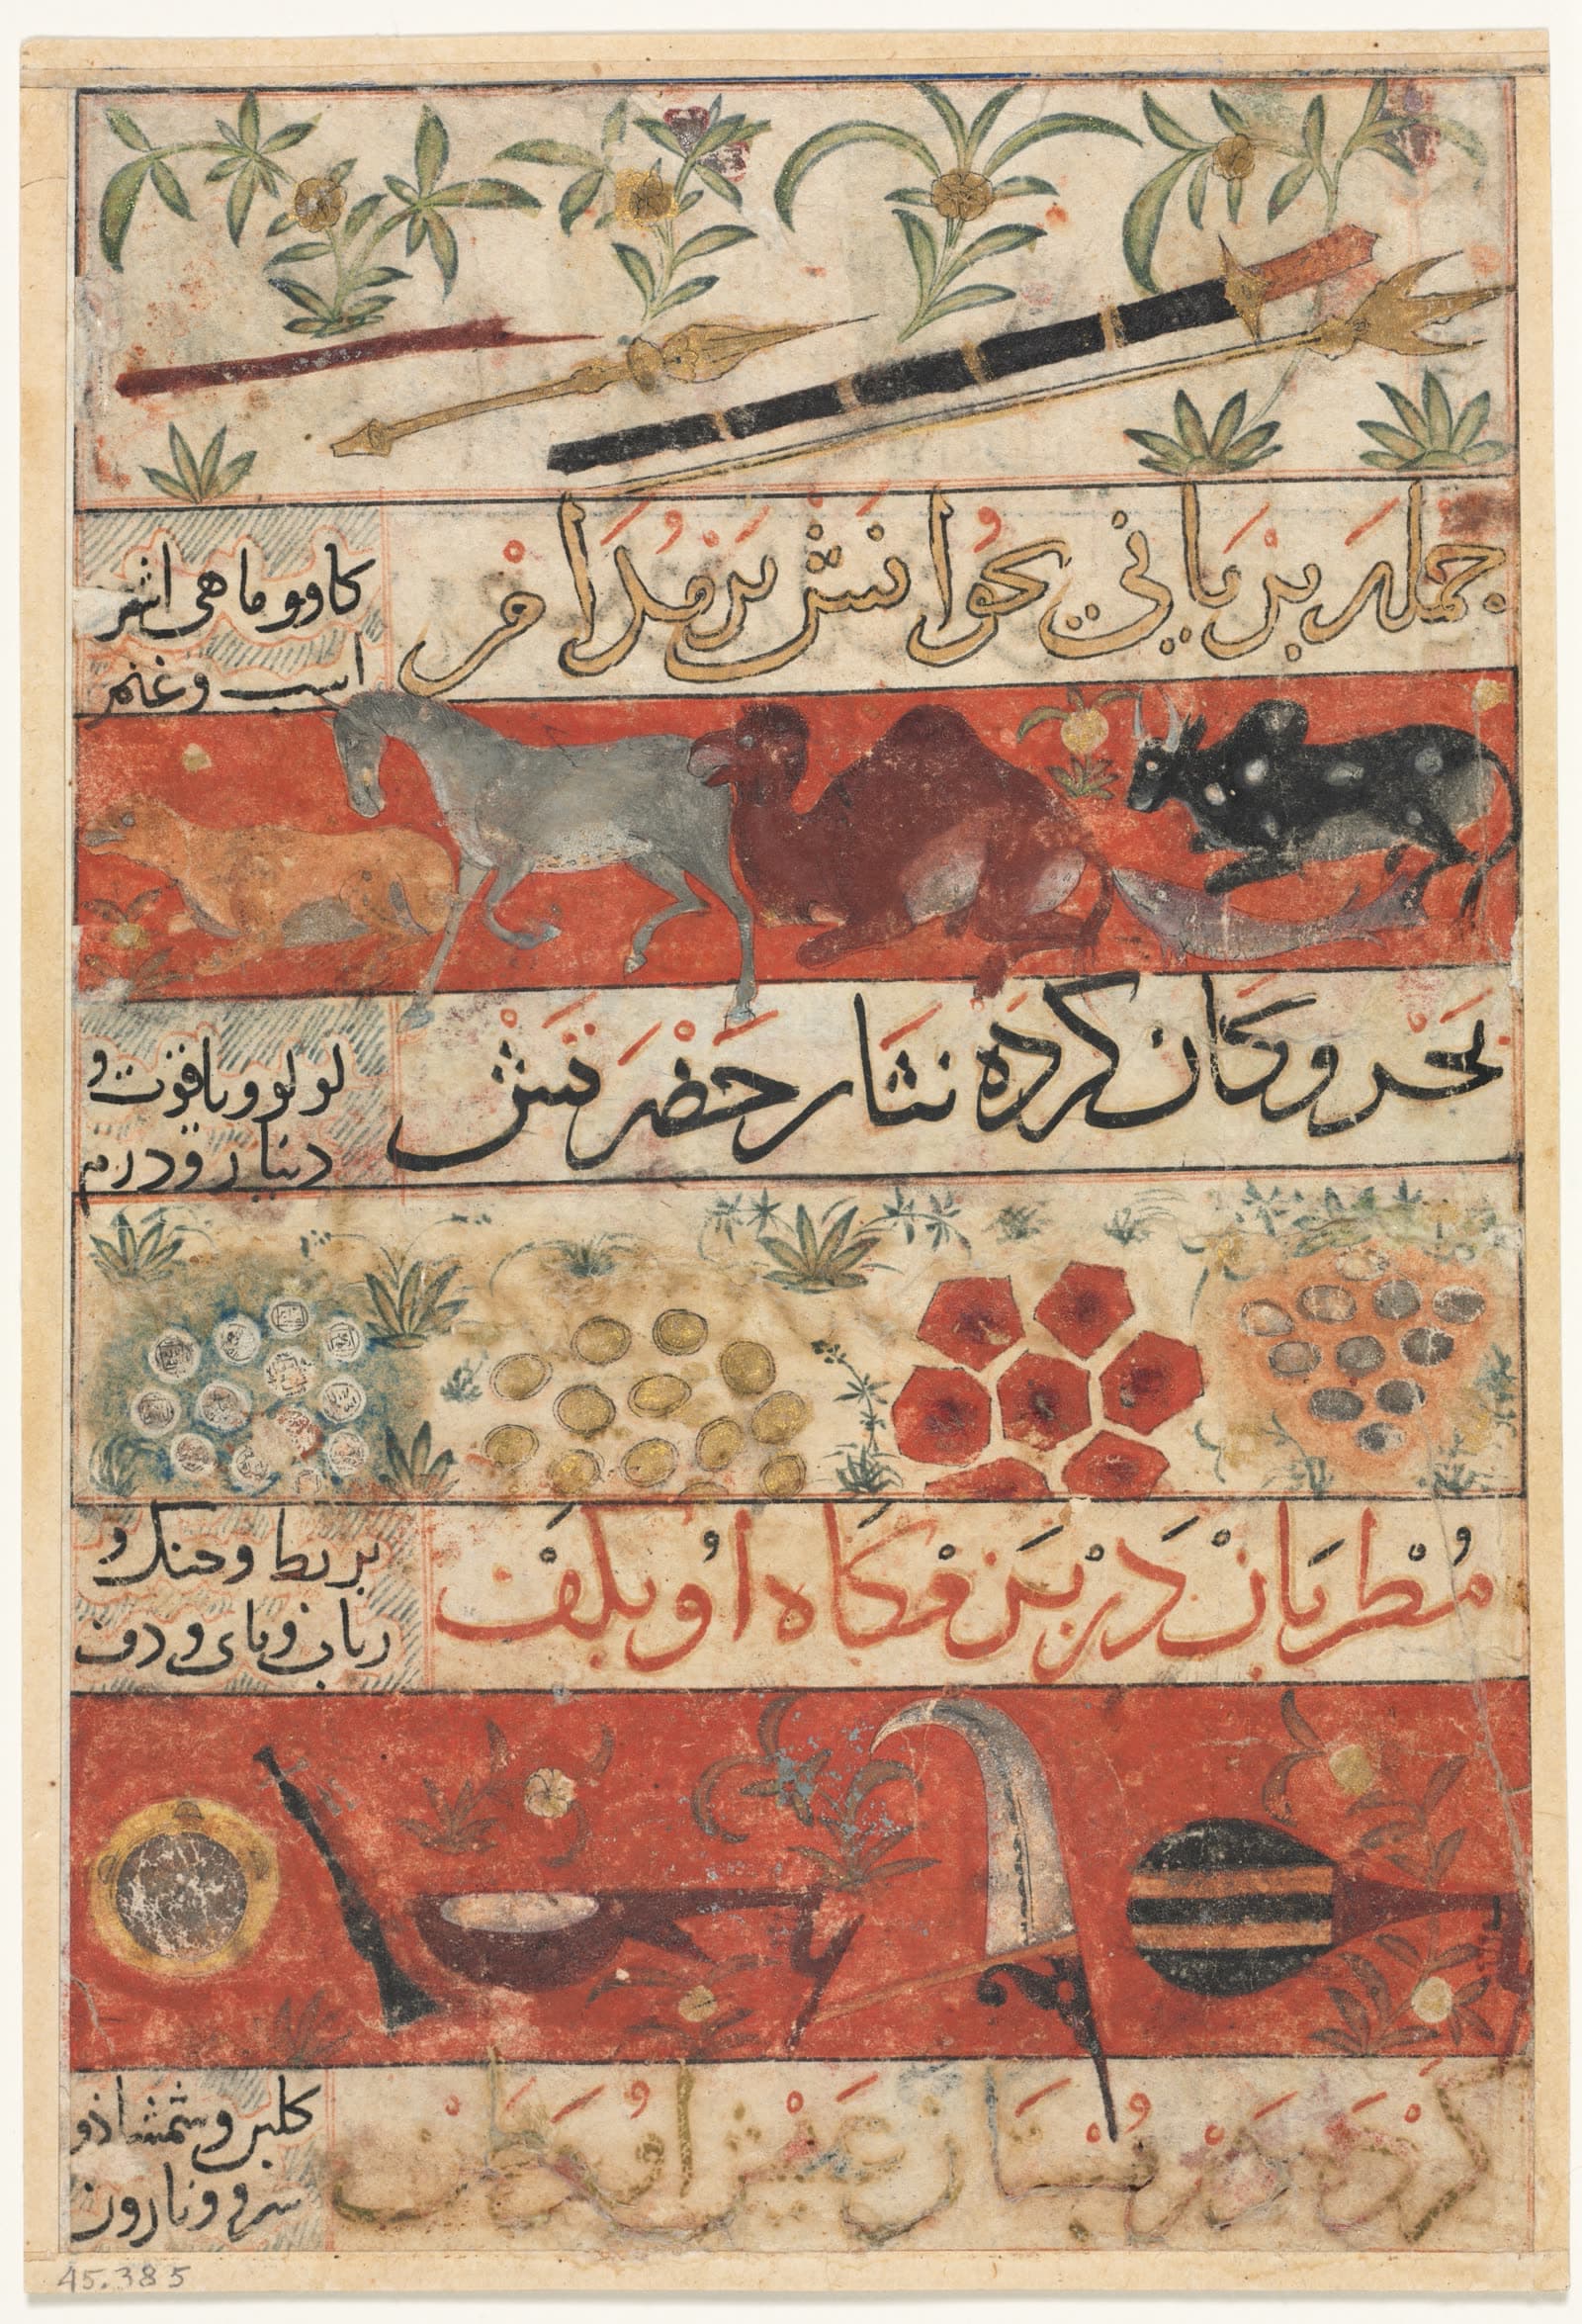 جمله بریانی بخوانش بر مدام
کاو و ماهی اشتر
اسب و غنم
بحر و کان کرده نثار حضرتش
لولو و یاقوت و
دینار و درم
مُطربان در بزمکاه او بکف
بربط و چنک و
رباب و نای و دف
کرده در بستان ز عیش او
کلبن و شمشاذ و
سرو و نارون
45.385